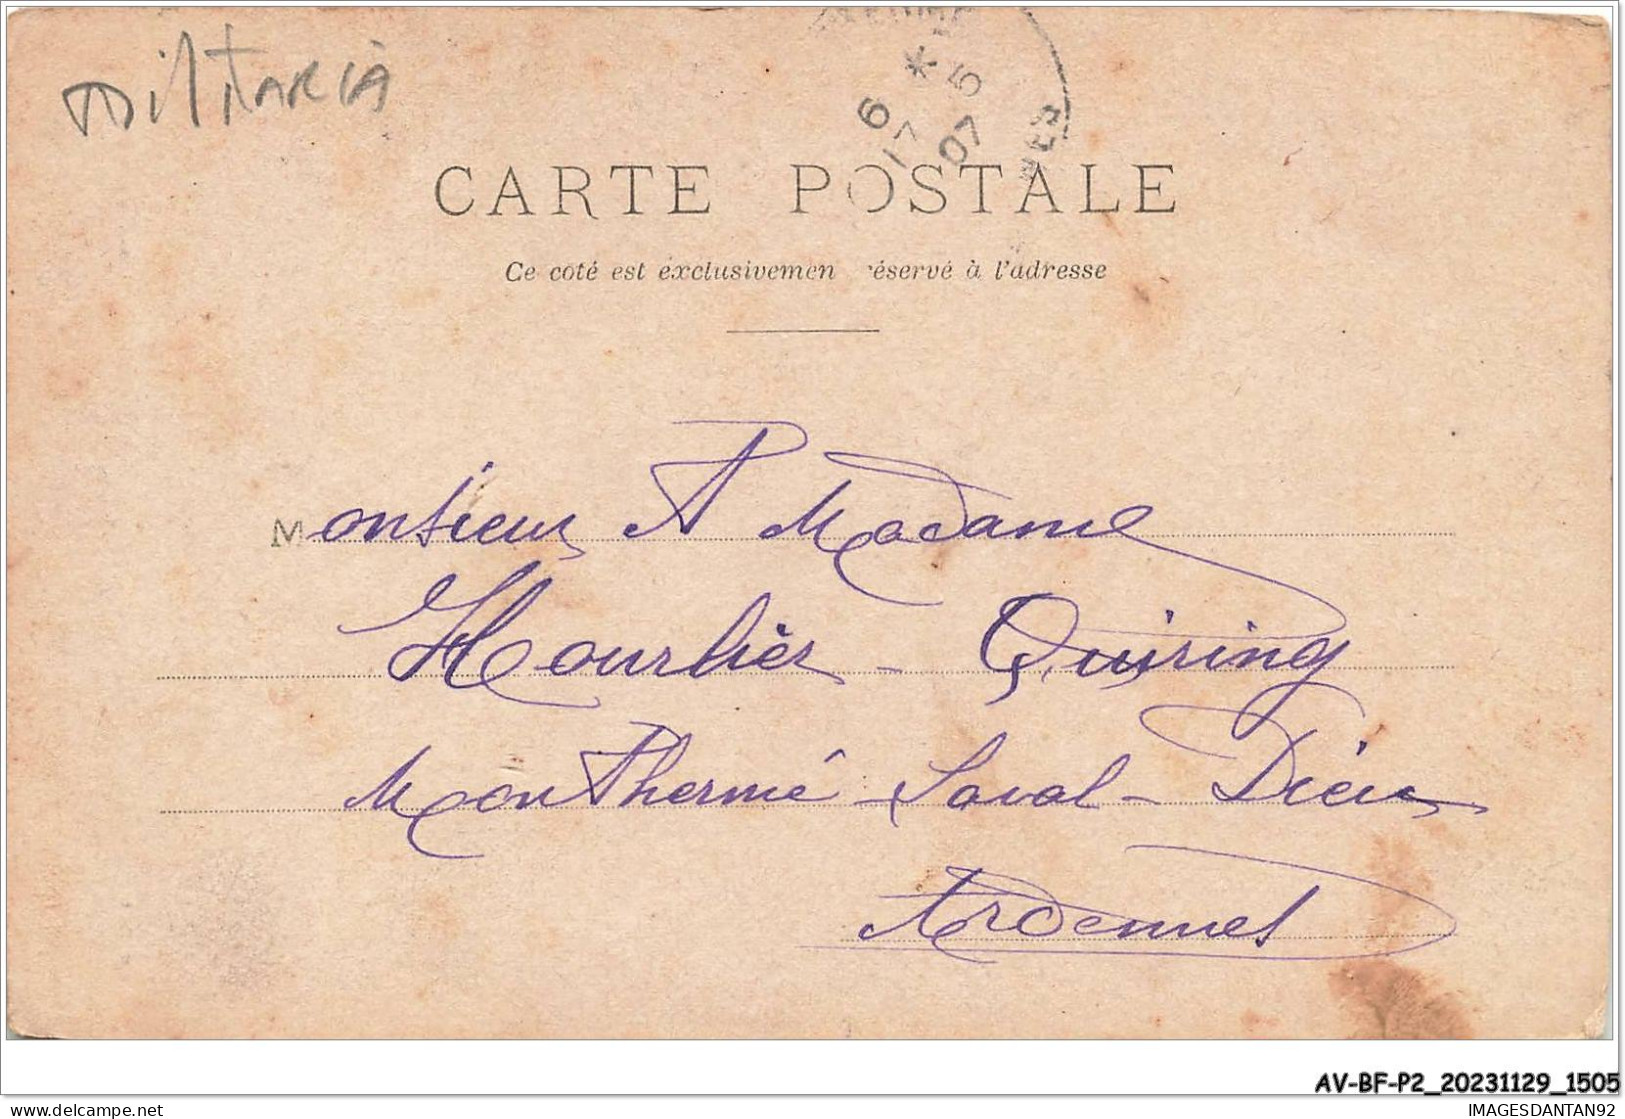 militaria
6 * 5
17 07
CARTE POSTALE
Ce coté est exclusivemen éservé à l'adresse
Monsieur & Madame
Hourlier - Quiring
Monthermé - Laval - Dieu
Ardennes
AV-BF-P2_20231129_1505
www.delcampe.net
IMAGESDANTAN92